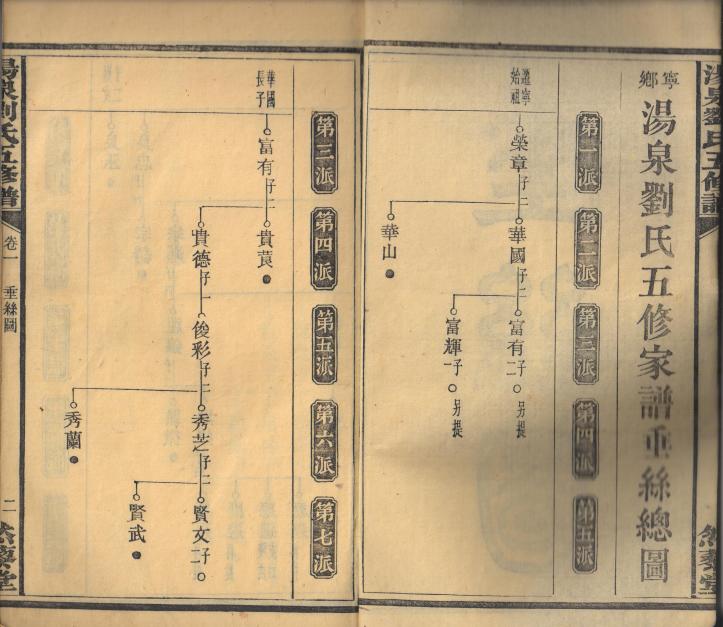 湯泉劉氏五修譜
然藜堂
寧鄉
湯泉劉氏五修家譜垂絲總圖
第一派
第二派
第三派
第四派
第五派
遷寧始祖
榮章子二
華國子二
富有子二
另提
富輝子一
另提
華山
第三派
第四派
第五派
第六派
第七派
華國長子
富有子二
貴蕡
貴德子一
俊彩子二
秀芝子二
賢文子二
賢武
秀蘭
湯泉劉氏五修譜
卷一
垂絲圖
二
然藜堂